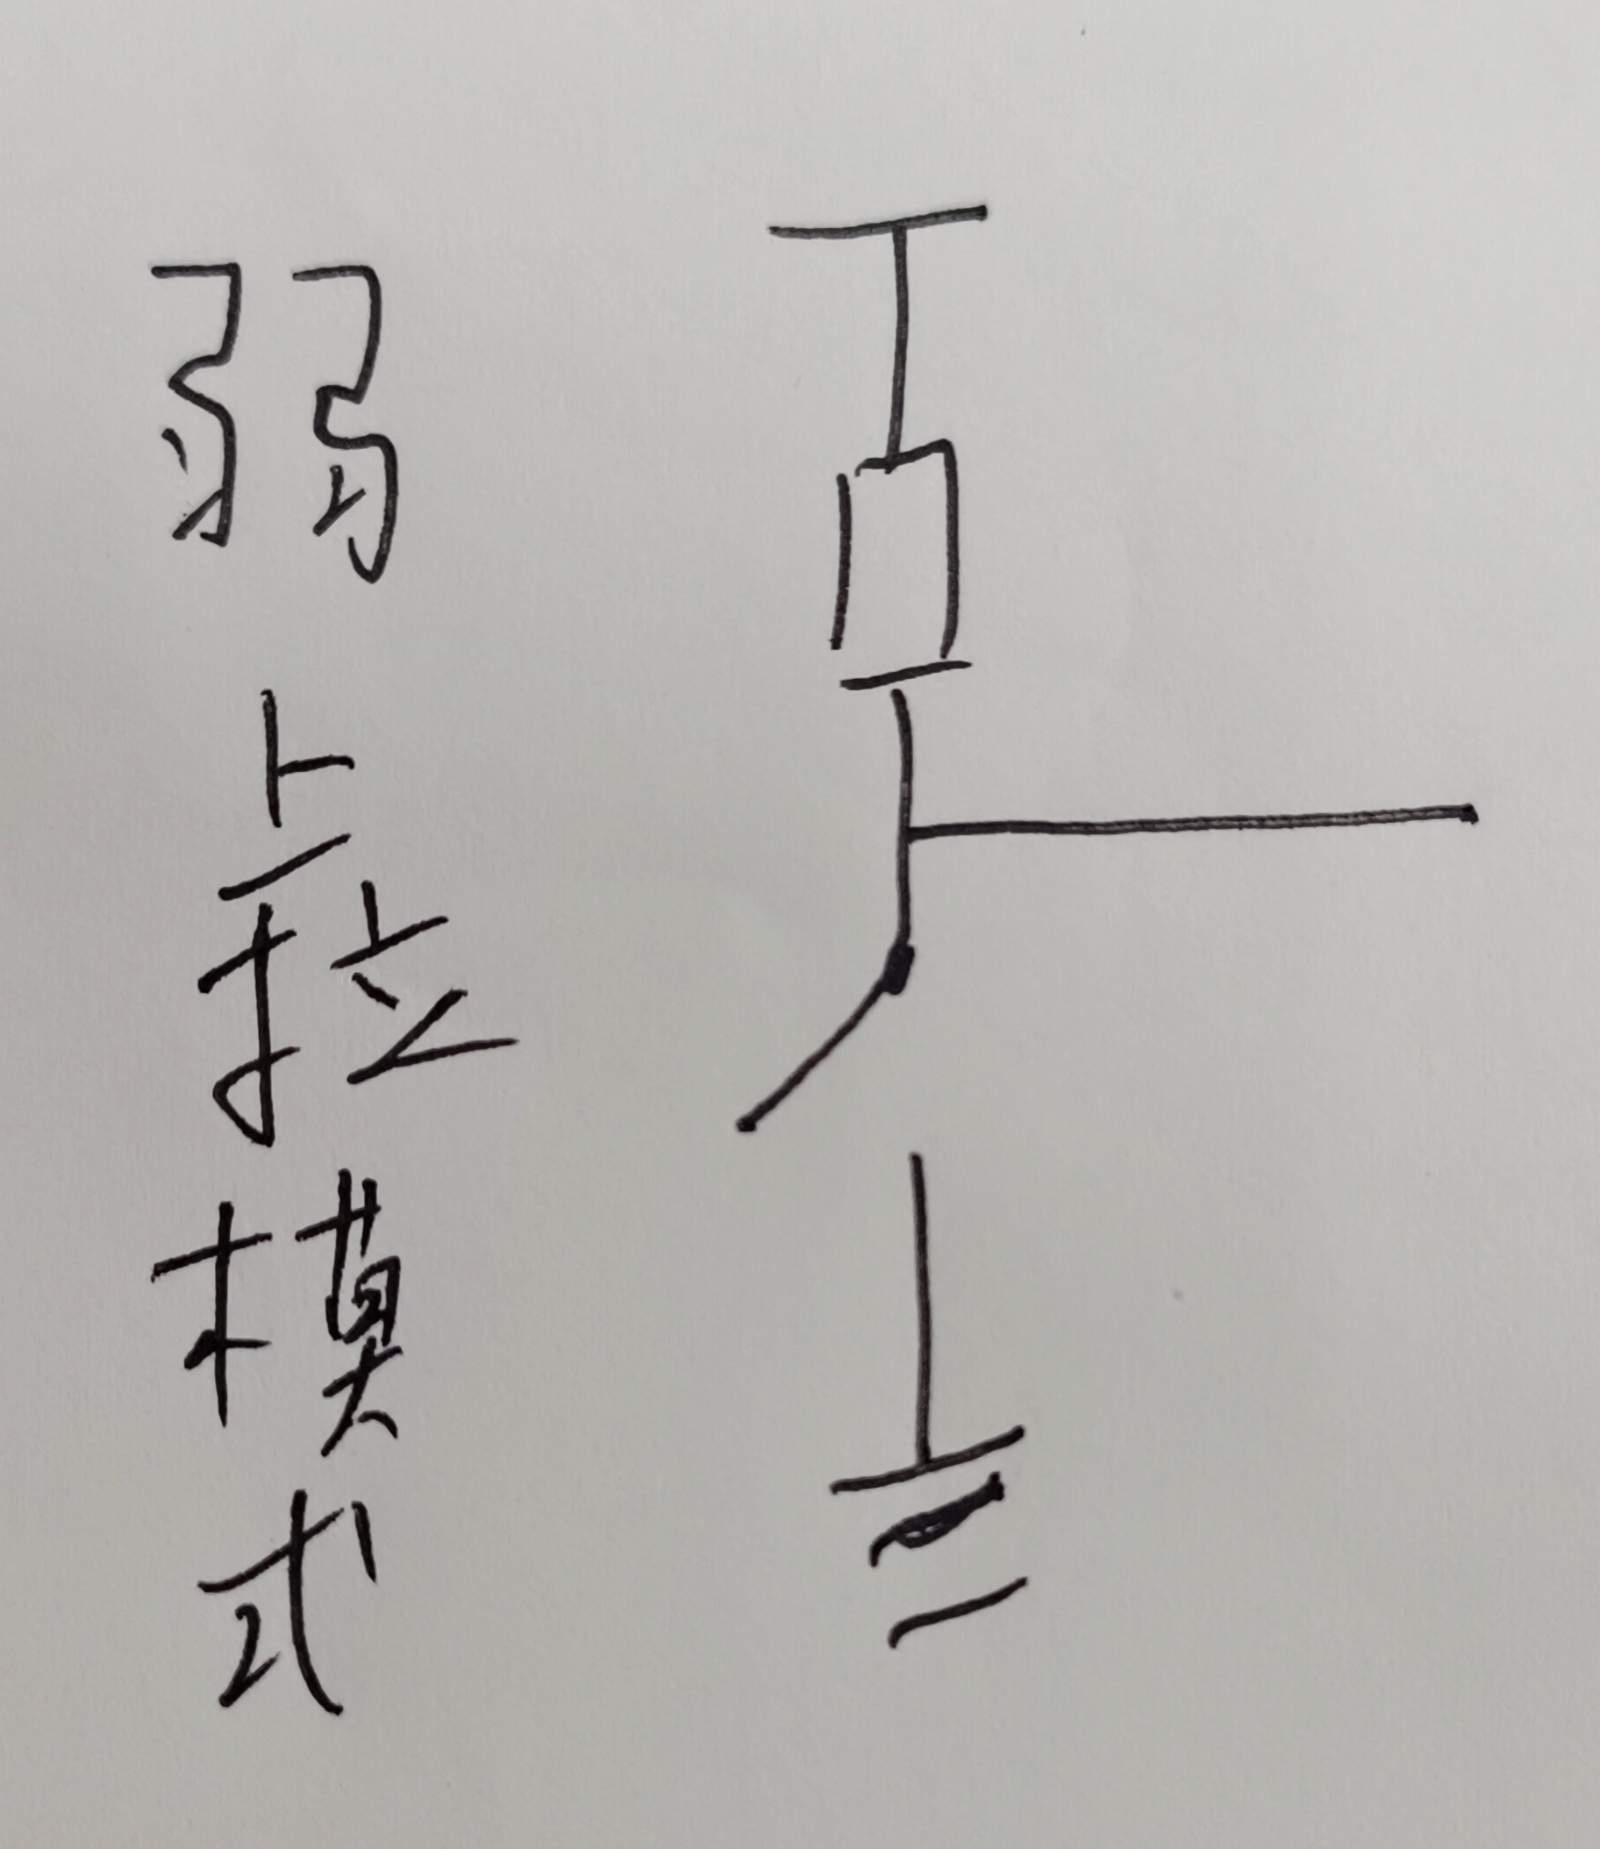 弱上拉模式